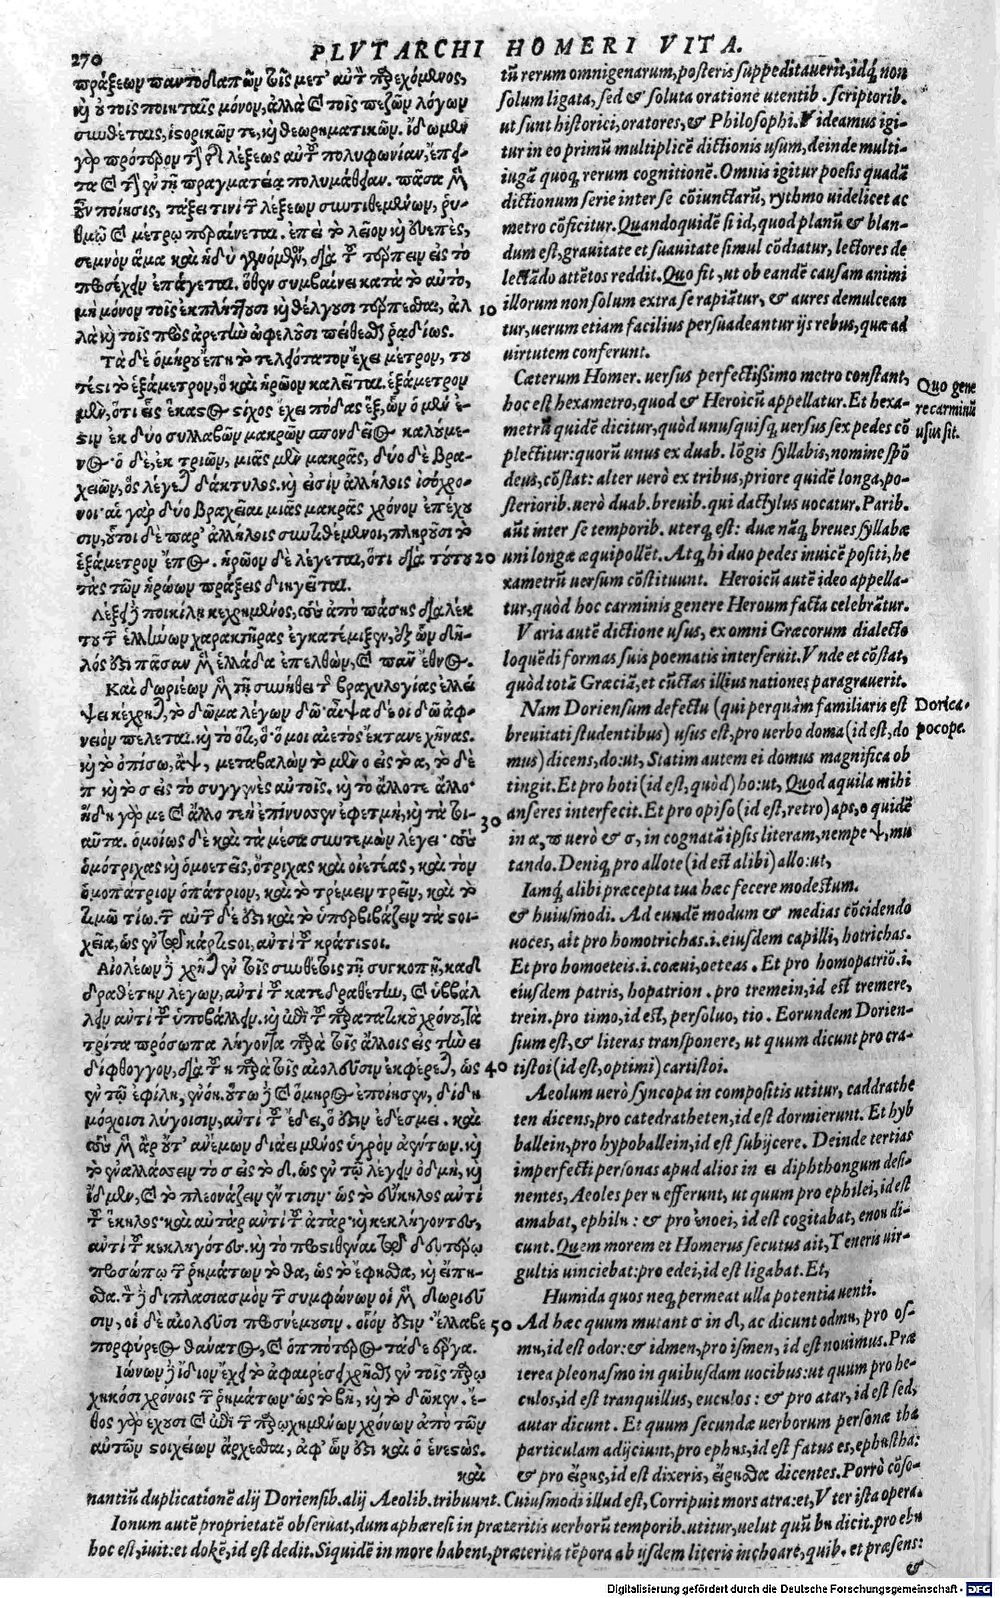 270
PLVTARCHI HOMERI VITA.
πράξεων παντοδαπῶν τοῖς μετ' αὐτὸν παρεχόμενος,
καὶ οὐ τοῖς ποιηταῖς μόνον, ἀλλὰ καὶ τοῖς πεζῶν λόγων
συνθέταις, ἱστορικῶν τε, καὶ θεωρηματικῶν. ἴδωμεν
γὰρ πρότερον τὴν τῆς λέξεως αὐτοῦ πολυφωνίαν, ἔπει-
τα καὶ τὴν ἐν τῇ πραγματείᾳ πολυμάθειαν. πᾶσα μὲν
οὖν ποίησις, τάξει τινὶ τῶν λέξεων συντιθεμένων, ῥυ-
θμῷ καὶ μέτρῳ περαίνεται. ἐπεὶ τὸ λεῖον καὶ εὐεπὲς,
σεμνὸν ἅμα καὶ ἡδὺ γενόμενον, διὰ τοῦ τέρπειν εἰς τὸ
προσέχειν ἐπάγεται. ὅθεν συμβαίνει κατὰ τὸ αὐτὸ,
μὴ μόνον τοῖς ἐκπλήττουσι καὶ θέλγουσι τέρπεσθαι, ἀλ
10
λὰ καὶ τοῖς πρὸς ἀρετὴν ὠφελοῦσι πείθεσθαι ῥᾳδίως.
Τὰ δὲ ὁμήρου ἔπη τὸ τελειότατον ἔχει μέτρον, του
τέστι τὸ ἑξάμετρον, ὃ καὶ ἡρῷον καλεῖται. ἑξάμετρον
μὲν, ὅτι εἷς ἕκαστος στίχος ἔχει πόδας ἓξ, ὧν ὁ μὲν ἔ-
στιν ἐκ δύο συλλαβῶν μακρῶν σπονδεῖος καλούμε-
νος· ὁ δὲ, ἐκ τριῶν, μιᾶς μὲν μακρᾶς, δύο δὲ βρα-
χειῶν, ὃς λέγεται δάκτυλος. καὶ εἰσὶν ἀλλήλοις ἰσόχρο-
νοι· αἱ γὰρ δύο βραχεῖαι μιᾶς μακρᾶς χρόνον ἐπέχου
σιν, οὗτοι δὲ παρ' ἀλλήλοις συντιθέμενοι, πληροῦσι τὸ
ἑξάμετρον ἔπος. ἡρῷον δὲ λέγεται, ὅτι διὰ τούτου
20
τὰς τῶν ἡρώων πράξεις διηγεῖται.
Λέξει δὲ ποικίλῃ κεχρημένος, τοὺς ἀπὸ πάσης διαλέκ
του τῶν ἑλλήνων χαρακτῆρας ἐγκατέμιξεν, ἐξ ὧν δῆ-
λός ἐστι πᾶσαν μὲν ἑλλάδα ἐπελθὼν, καὶ πᾶν ἔθνος.
Καὶ δωριέων μὲν τῇ συνήθει τῆς βραχυλογίας ἐλλεί
ψει κέχρηται, τὸ δῶμα λέγων δῶ· αἶψα δέ οἱ δῶ ἀφ-
νειὸν πέλεται. καὶ τὸ ὅτι, ὅ· ὅ μοι αἰετὸς ἔκτανε χῆνας.
καὶ τὸ ὀπίσω, ἂψ, μεταβαλὼν τὸ μὲν ο εἰς τὸ α, τὸ δὲ
π καὶ τὸ σ εἰς τὸ συγγενὲς αὐτοῖς. καὶ τὸ ἄλλοτε ἄλλο·
ἤδη γὰρ με καὶ ἄλλο τεὴ ἐπίνυσσεν ἐφετμὴ, καὶ τὰ τοι-
30
αῦτα. ὁμοίως δὲ καὶ τὰ μέσα συντεμὼν λέγει· τοὺς
ὁμότριχας καὶ ὁμοετεῖς, ὄτριχας καὶ οἰετέας, καὶ τὸν
ὁμοπάτριον ὀπάτριον, καὶ τὸ τρέμειν τρεῖν, καὶ τὸ
τιμῶ τίω. τῶν αὐτῶν δέ ἐστι καὶ τὸ ὑπερβιβάζειν τὰ στοι-
χεῖα, ὡς ἐν τῷ κάρτιστοι, ἀντὶ τοῦ κράτιστοι.
Αἰολέων δὲ χρῆται ἐν τοῖς συνθέτοις τῇ συγκοπῇ, καδ
δραθέτην λέγων, ἀντὶ τοῦ κατεδραθέτην, καὶ ὑββάλ
λειν ἀντὶ τοῦ ὑποβάλλειν. καὶ ἐπὶ τοῦ παρατατικοῦ χρόνου, τὰ
τρίτα πρόσωπα λήγοντα παρὰ τοῖς ἄλλοις εἰς τὴν ει
δίφθογγον, διὰ τοῦ η παρὰ τοῖς αἰολεῦσιν ἐκφέρεται, ὡς
40
ἐν τῷ ἐφίλη, ἐνόη. οὕτω δὲ καὶ ὅμηρος ἐποίησεν, δίδη
μόσχοισι λύγοισιν, ἀντὶ τοῦ ἔδει, ὅ ἐστιν ἐδέσμει. καὶ
τοὺς μὲν ἄρ οὔτ' ἀνέμων διάει μένος ὑγρὸν ἀέντων. καὶ
τὸ ἐναλλάσσειν τὸ σ εἰς τὸ δ, ὡς ἐν τῷ λέγειν ὀδμὴ, καὶ
ἴδμεν, καὶ τὸ πλεονάζειν ἔν τισιν· ὡς τὸ εὔκηλος ἀντὶ
τοῦ ἕκηλος· καὶ αὐτὰρ ἀντὶ τοῦ ἀτάρ· καὶ κεκλήγοντες,
ἀντὶ τοῦ κεκληγότες. καὶ τὸ προστιθέναι τῷ δευτέρῳ
προσώπῳ τῶν ῥημάτων τὸ θα, ὡς τὸ ἔφησθα, καὶ εἴπη-
σθα. τὸν δὲ διπλασιασμὸν τῶν συμφώνων οἱ μὲν δωριεῦ
σιν, οἱ δὲ αἰολεῦσι προσνέμουσιν. οἷόν ἐστιν· ἔλλαβε
50
πορφύρεος θάνατος, καὶ ὁππότερος τάδε ἔργα.
Ἰώνων δὲ ἴδιον ἔχει τὸ ἀφαιρέσει χρῆσθαι ἐν τοῖς παρῳ
χηκόσι χρόνοις τῶν ῥημάτων· ὡς τὸ βῆ, καὶ τὸ δῶκεν. ἔ-
θος γὰρ ἔχουσι καὶ ἐπὶ τῶν παρῳχημένων χρόνων ἀπὸ τῶν
αὐτῶν στοιχείων ἄρχεσθαι, ἀφ' ὧν ἐστι καὶ ὁ ἐνεστώς.
καὶ
tũ rerum omnigenarum, posteris suppeditauerit, idq́; non
solum ligata, sed & soluta oratione utentib. scriptorib.
ut sunt historici, oratores, & Philosophi. Videamus igi-
tur in eo primũ multiplicẽ dictionis usum, deinde multi-
iugã quoq; rerum cognitionẽ. Omnis igitur poesis quadã
dictionum serie inter se cõiunctarũ, rythmo uidelicet ac
metro cõficitur. Quandoquidẽ si id, quod planũ & blan-
dum est, grauitate et suauitate simul cõdiatur, lectores de
lectãdo attẽtos reddit. Quo fit, ut ob eandẽ causam animi
illorum non solum extra se rapiãtur, & aures demulcean
tur, uerum etiam facilius persuadeantur ijs rebus, quæ ad
uirtutem conferunt.
Cæterum Homer. uersus perfectissimo metro constant,
hoc est hexametro, quod & Heroicũ appellatur. Et hexa-
metrũ quidẽ dicitur, quòd unusquisq; uersus sex pedes cõ
plectitur: quorũ unus ex duab. lõgis syllabis, nomine spõ
deus, cõstat: alter uerò ex tribus, priore quidẽ longa, po-
steriorib. uerò duab. breuib. qui dactylus uocatur. Parib.
aũt inter se temporib. uterq; est: duæ nãq; breues syllabæ
uni longæ æquipollẽt. Atq; hi duo pedes inuicẽ positi, he
xametrũ uersum cõstituunt. Heroicũ autẽ ideo appella-
tur, quòd hoc carminis genere Heroum facta celebrãtur.
Quo gene
re carminũ
usus sit.
Varia autẽ dictione usus, ex omni Græcorum dialecto
loquẽdi formas suis poematis interseruit. Vnde et cõstat,
quòd totã Græciã, et cũctas illius nationes paragrauerit.
Nam Doriensum defectu (qui perquàm familiaris est
breuitati studentibus) usus est, pro uerbo doma (id est, do
mus) dicens, do: ut, Statim autem ei domus magnifica ob
tingit. Et pro hoti (id est, quòd) ho: ut, Quod aquila mihi
anseres interfecit. Et pro opiso (id est, retro) aps, o quidẽ
in α, π uerò & σ, in cognatã ipsis literam, nempe ψ, mu
tando. Deniq; pro allote (id est alibi) allo: ut,
Dorica a-
pocope.
Iamq́; alibi præcepta tua hæc fecere modestum.
& huiusmodi. Ad eundẽ modum & medias cõcidendo
uoces, ait pro homotrichas. i. eiusdem capilli, hotrichas.
Et pro homoeteis. i. coæui, oeteas. Et pro homopatriũ. i.
eiusdem patris, hopatrion. pro tremein, id est tremere,
trein. pro timo, id est, persoluo, tio. Eorundem Dorien-
sium est, & literas transponere, ut quum dicunt pro cra-
tistoi (id est, optimi) cartistoi.
Aeolum uerò syncopa in compositis utitur, caddrathe
ten dicens, pro catedratheten, id est dormierunt. Et hyb
ballein, pro hypoballein, id est subijcere. Deinde tertias
imperfecti personas apud alios in ει diphthongum desi-
nentes, Aeoles per η efferunt, ut quum pro ephilei, id est
amabat, ephilη: & pro enoei, id est cogitabat, enoη di-
cunt. Quem morem et Homerus secutus ait, Teneris uir-
gultis uinciebat: pro edei, id est ligabat. Et,
Humida quos neq; permeat ulla potentia uenti.
Ad hæc quum mutant σ in δ, ac dicunt odmη, pro os-
mη, id est odor: & idmen, pro ismen, id est nouimus. Præ
terea pleonasmo in quibusdam uocibus: ut quum pro he-
cηlos, id est tranquillus, eucηlos: & pro atar, id est sed,
autar dicunt. Et quum secundæ uerborum personæ tha
particulam adijciunt, pro ephηs, id est fatus es, ephηstha:
& pro εἴρης, id est dixeris, εἴρησθα dicentes. Porrò cõso-
nantiũ duplicationẽ alij Doriensib. alij Aeolib. tribuunt. Cuiusmodi illud est, Corripuit mors atra: et, Vter ista opera.
Ionum autẽ proprietatẽ obseruat, dum aphæresi in præteritis uerborũ temporib. utitur, uelut quũ bη dicit. pro ebη
hoc est, iuit: et dokẽ, id est dedit. Siquidẽ in more habent, præterita tẽpora ab ijsdem literis inchoare, quib. et præsens:
&
Digitalisierung gefördert durch die Deutsche Forschungsgemeinschaft - DFG